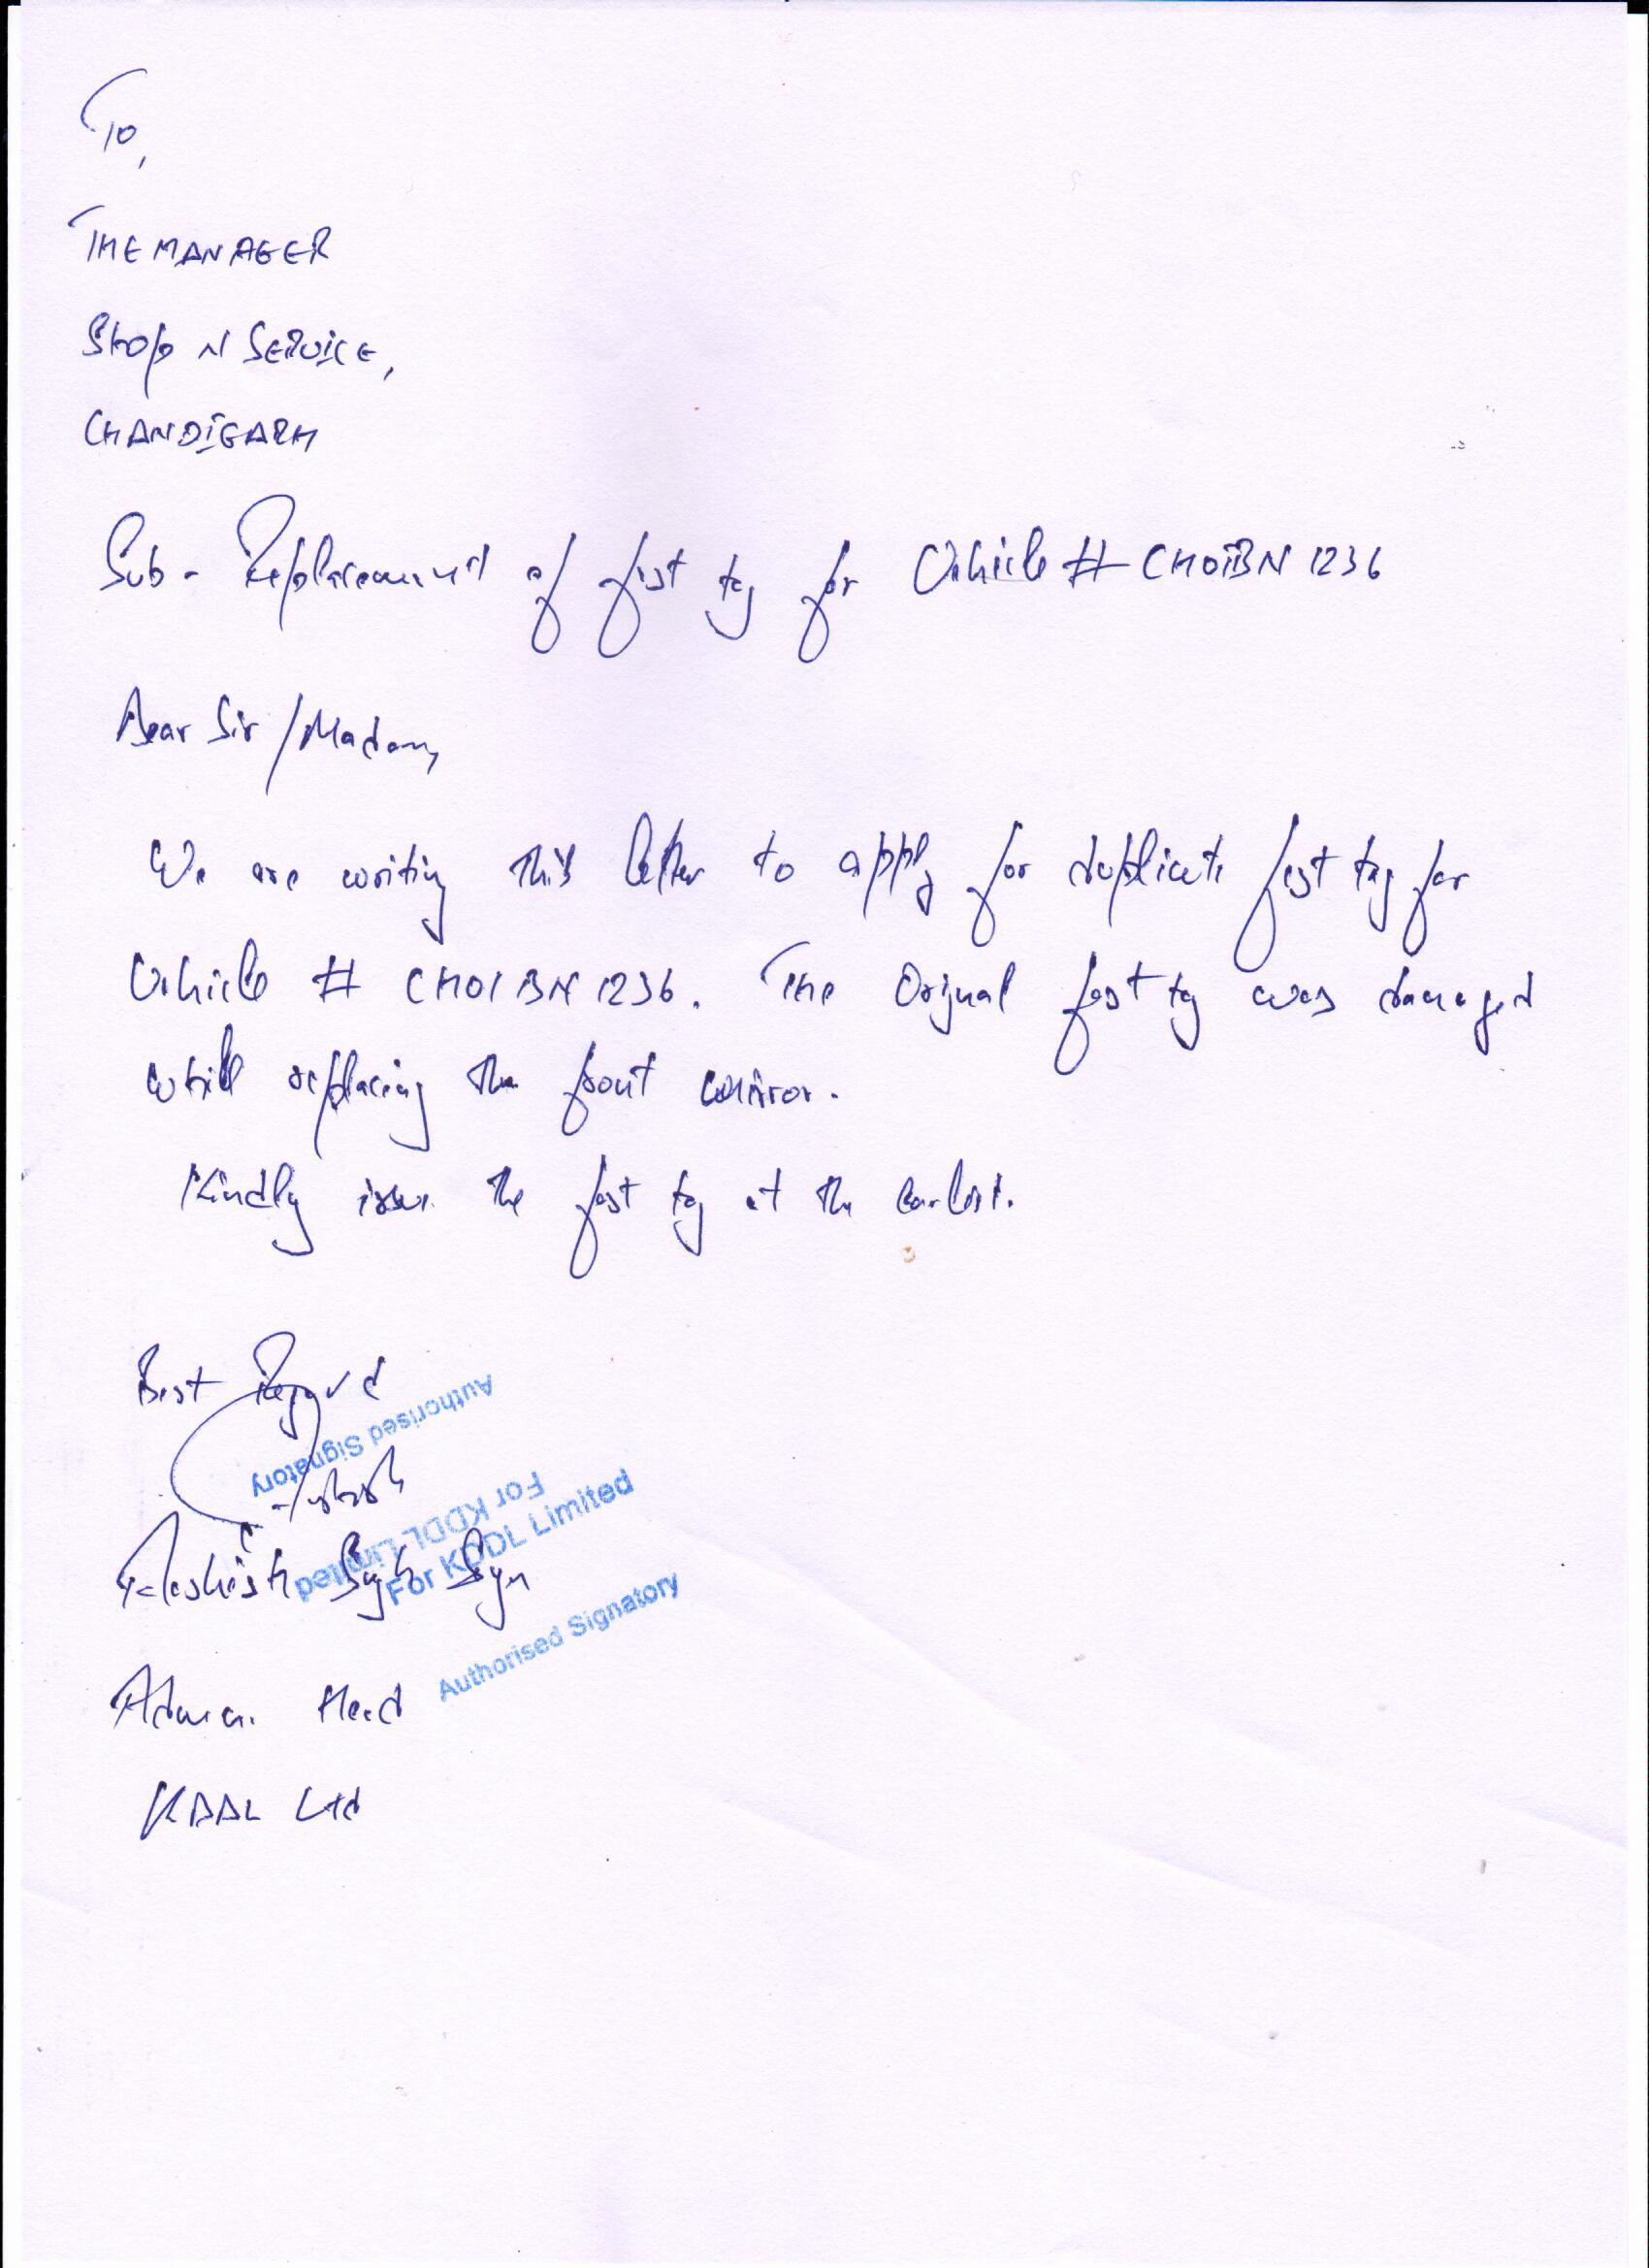 To,
THE MANAGER
Shop N SERVICE,
CHANDIGARH
Sub - Replacement of fast tag for Vehicle # CH01BN 1236
Dear Sir / Madam,
We are writing this letter to apply for duplicate fast tag for
Vehicle # CH01BN 1236. The Orignal fast tag was damaged
while replacing the front mirror.
Kindly issue the fast tag at the earliest.
Best Regard
Authorised Signatory
For KDDL Limited
For KDDL Limited
Singh
Authorised Signatory
Admn. Head
KDDL Ltd